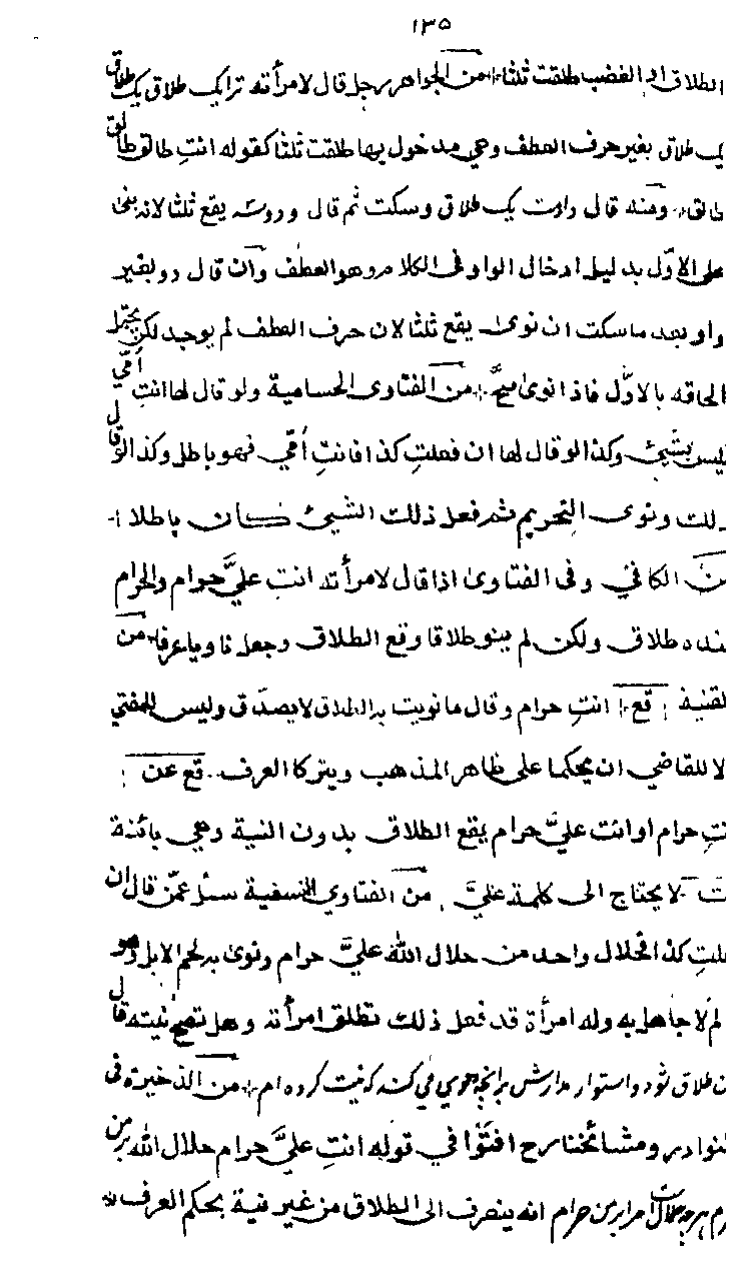 ١٣٥
الطلاق او الغضب طلقت ثلثا من الجواهر رجل قال لامرأته ترا يك طلاق يك طلاق
يك طلاق بغير حرف العطف وهي مدخول بها طلقت ثلثا كقوله انتِ طالق طالق
طالق ومنه قال دادمت يك طلاق وسكت ثم قال ودو يقع ثلثا لانه بنى
على الاوّل بدليل ادخال الواو فى الكلام وهو العطف وان قال دو بغير
واو بعد ما سكت ان نوى يقع ثلثا لان حرف العطف لم يوجد لكن يحتمل
الحاقه بالاوّل فاذا نوى صحَّ من الفتاوى الحسامية ولو قال لها انتِ أمّي
ليس بشيئ وكذا لو قال لها ان فعلتِ كذا فانتِ أمّي فهو باطل وكذا لو قال
ذلك ونوى التحريم ثم فعل ذلك الشيئ كان باطلا
من الكافي وفى الفتاوى اذا قال لامرأته انتِ عليَّ حرام والحرام
عنده طلاق ولكن لم ينو طلاقا وقع الطلاق وجعل ناويا عرفا من
القنية قع انتِ حرام وقال ما نويت به الطلاق لا يصدّق وليس للمفتي
لا للقاضي ان يحكما على ظاهر المذهب ويتركا العرف قع عن
نتِ حرام او انت عليَّ حرام يقع الطلاق بدون النية وهي بائنة
لا يحتاج الى كلمة عليَّ من الفتاوى النسفية سئل عمّن قال ان
علتِ كذا فحلال واحد من حلال الله عليَّ حرام ونوى به لحم الابل وهو
له امرأة قد فعل ذلك تطلق امرأته وهل تصحّ نيته قال
ن طلاق شود واستوار مدارش كه نيت كرده ام من الذخيرة فى
لنوادر ومشائخنا رح افتَوا في قوله انتِ عليَّ حرام حلال الله بر من
حرام انه ينصرف الى الطلاق من غير نية بحكم العرف